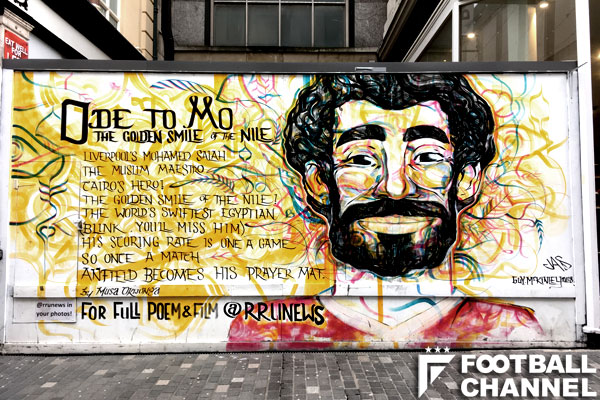 EAT WELL
FOR
ODE TO MO
THE GOLDEN SMILE OF THE NILE
LIVERPOOL'S MOHAMED SALAH
THE MUSLIM MAESTRO
CAIRO'S HERO!
THE GOLDEN SMILE OF THE NILE!
THE WORLD'S SWIFTEST EGYPTIAN
(BLINK YOU'LL MISS HIM)
HIS SCORING RATE IS ONE A GAME
SO ONCE A MATCH
ANFIELD BECOMES HIS PRAYER MAT.
By Musa Okwonga
@rrunews in
your photos!
FOR FULL POEM & FILM @RRUNEWS
FOOTBALL
CHANNEL